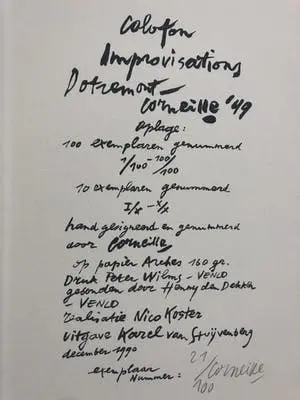 colofon
Improvisations
Dotremont-
Corneille '49
oplage:
100 exemplaren genummerd
1/100 - 100/100
10 exemplaren genummerd
I/X - X/X
hand gesigneerd en genummerd
door Corneille
op papier Arches 160 gr.
Druk Peter Wilms - VENLO
gebonden door Hanny den Dekker
- VENLO
realisatie Nico Koster
uitgave Karel van Stuijvenberg
december 1990
exemplaar
nummer: 21/100 Corneille